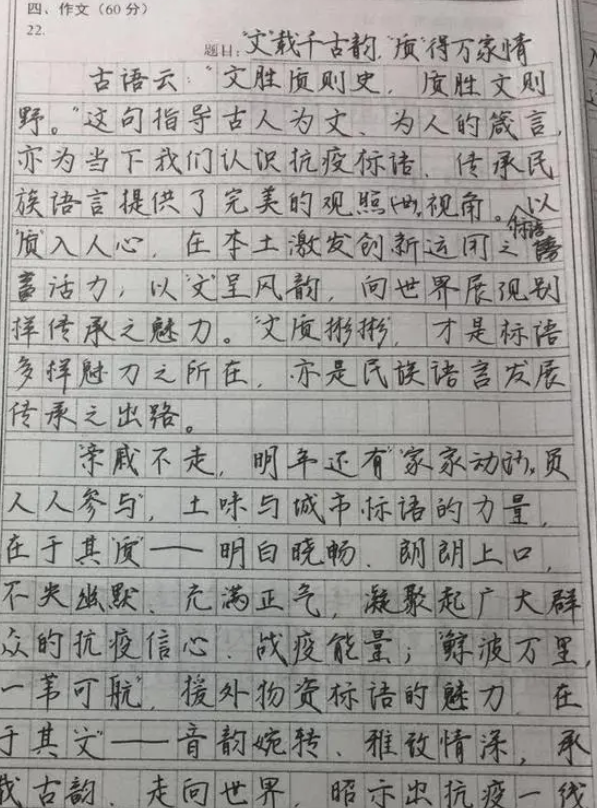 四、作文(60分)
22.
题目:“文”载千古韵,“质”得万家情
古语云:“文胜质则史,质胜文则
野。”这句指导古人为文、为人的箴言,
亦为当下我们认识抗疫标语、传承民
族语言提供了完美的观照视角。以
“质”入人心,在本土激发创新运用之标语
活力;以“文”呈风韵,向世界展现别
样传承之魅力。“文质彬彬”,才是标语
多样魅力之所在,亦是民族语言发展
传承之出路。
“亲戚不走,明年还有”“家家动员,
人人参与”,土味与城市标语的力量,
在于其“质”——明白晓畅、朗朗上口,
不失幽默、充满正气,凝聚起广大群
众的抗疫信心、战疫能量;“鲸波万里,
一苇可航”,援外物资标语的魅力,在
于其“文”——音韵婉转、雅致情深,承
载古韵、走向世界,昭示出抗疫一线